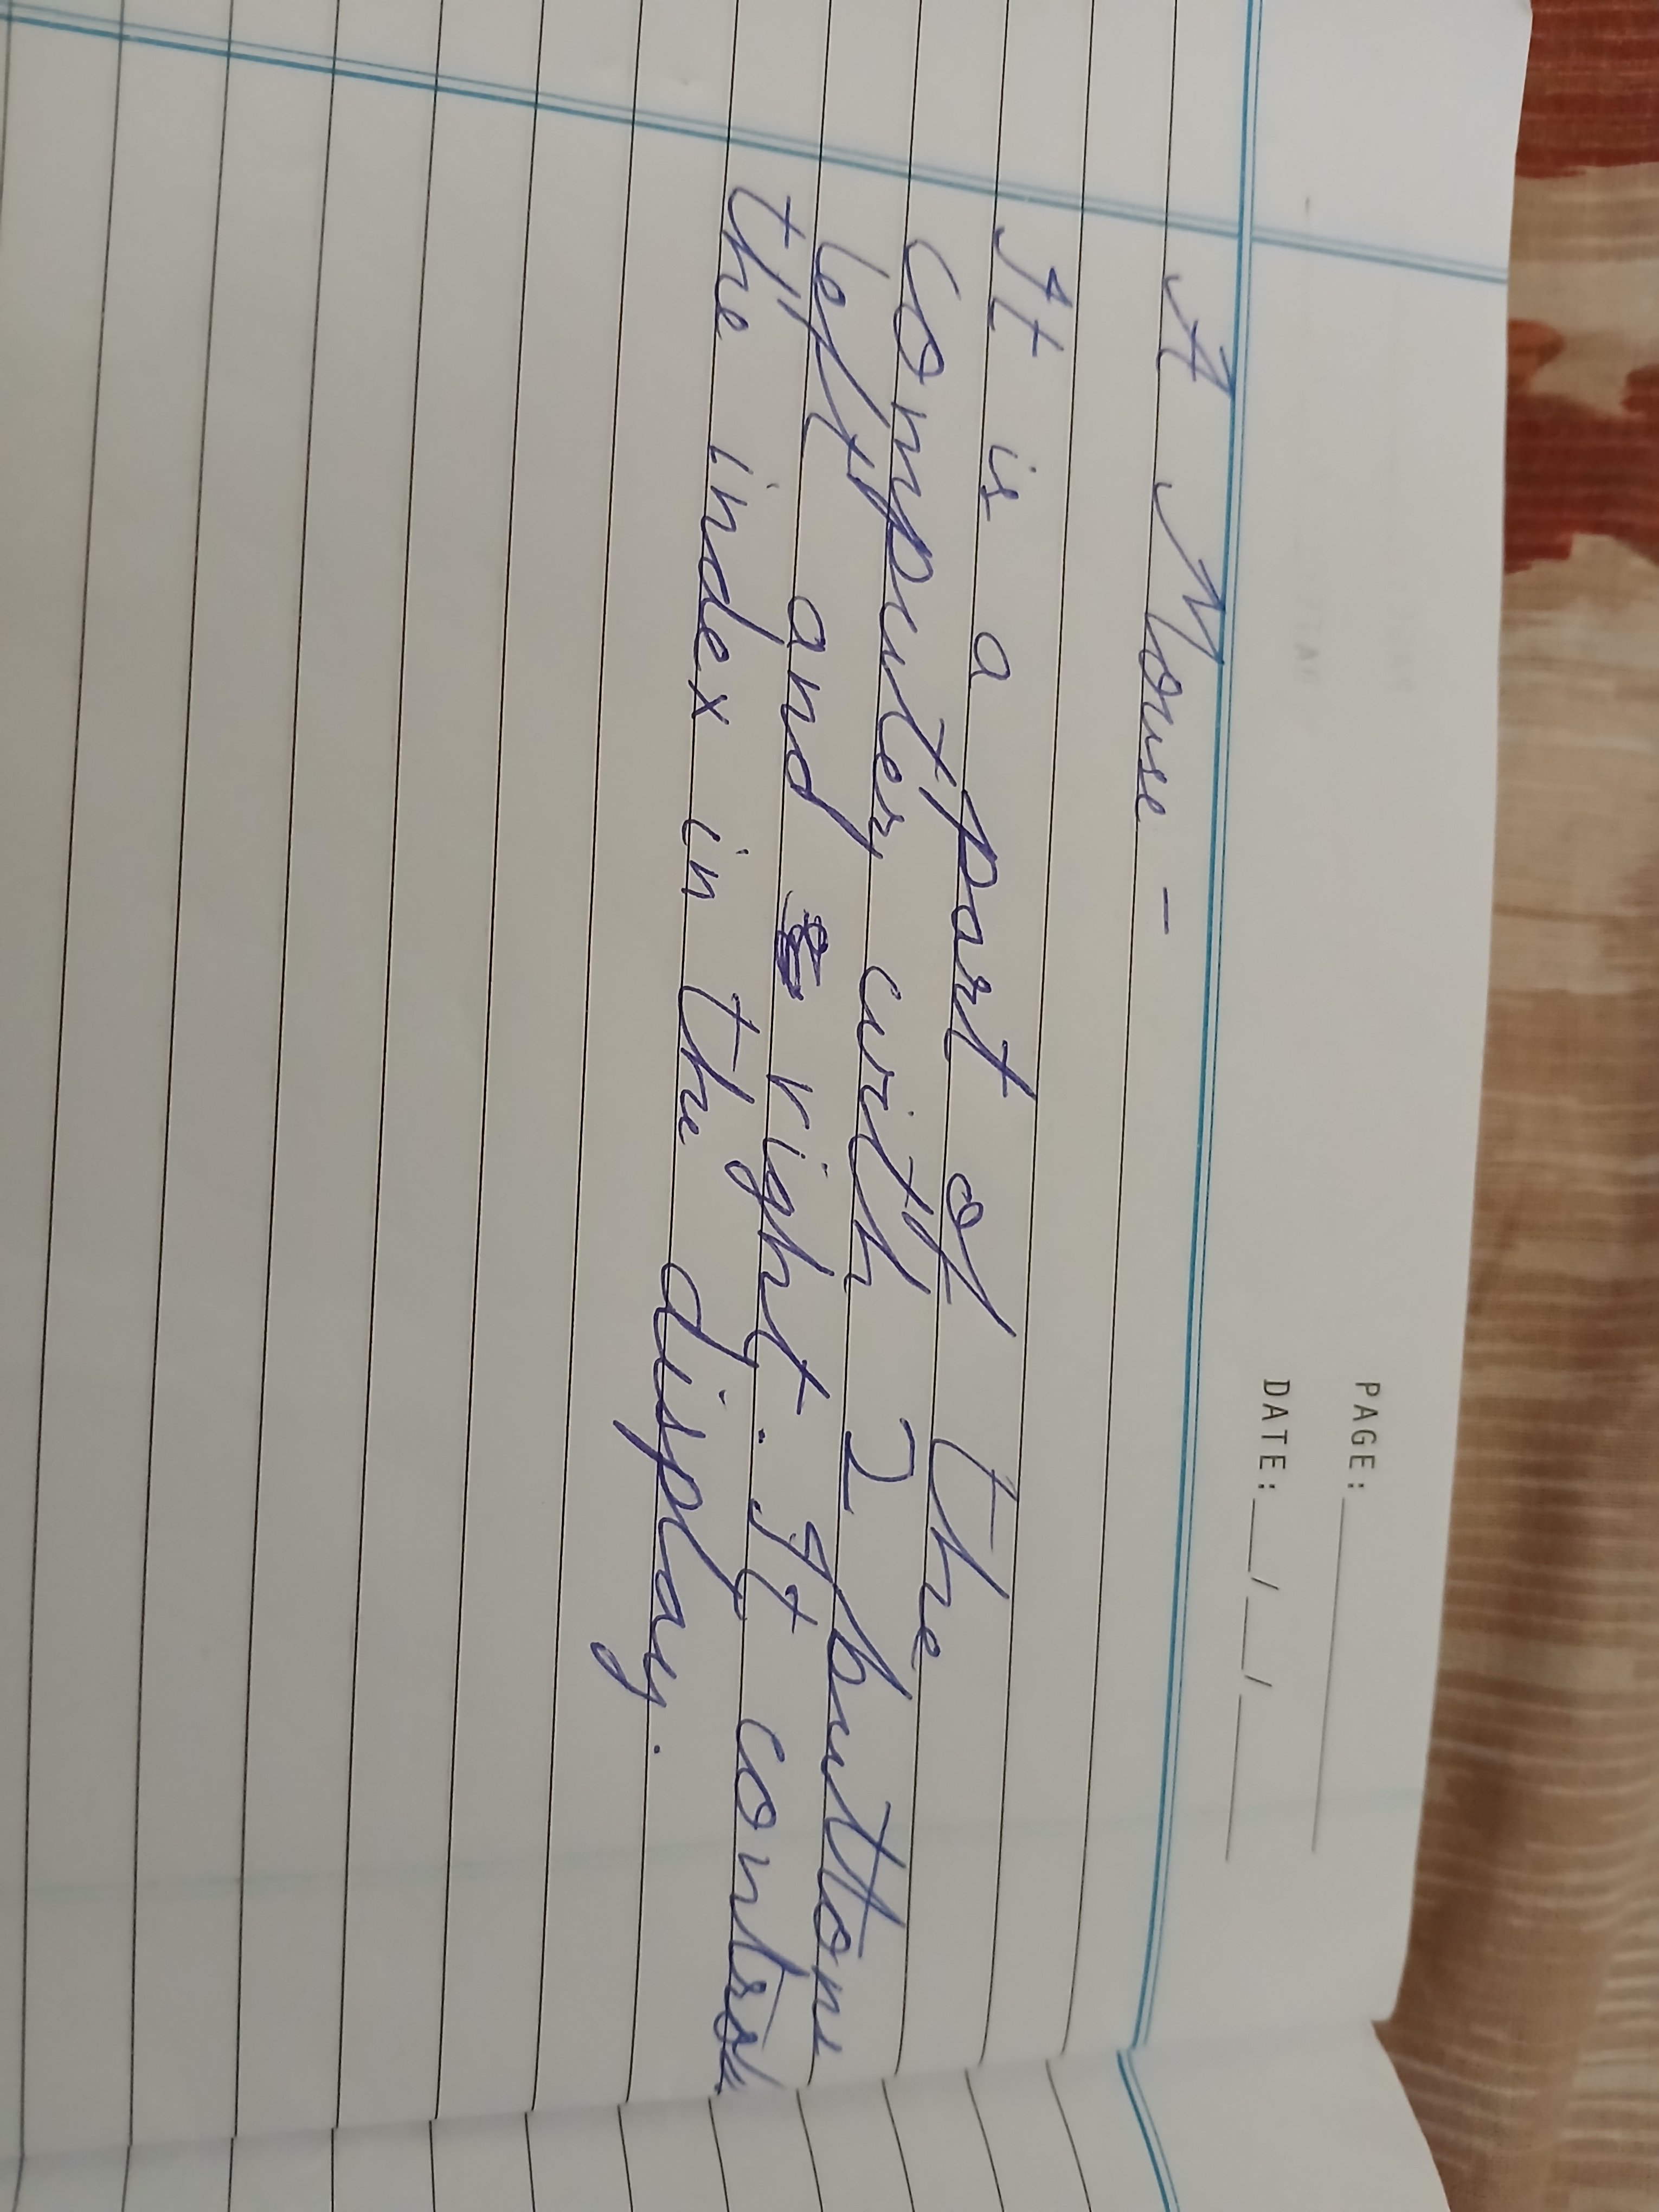 PAGE:
DATE: / /
A Mouse -
It is a part of the
computer with 2 buttons
left and right. It controls
the index in the display.